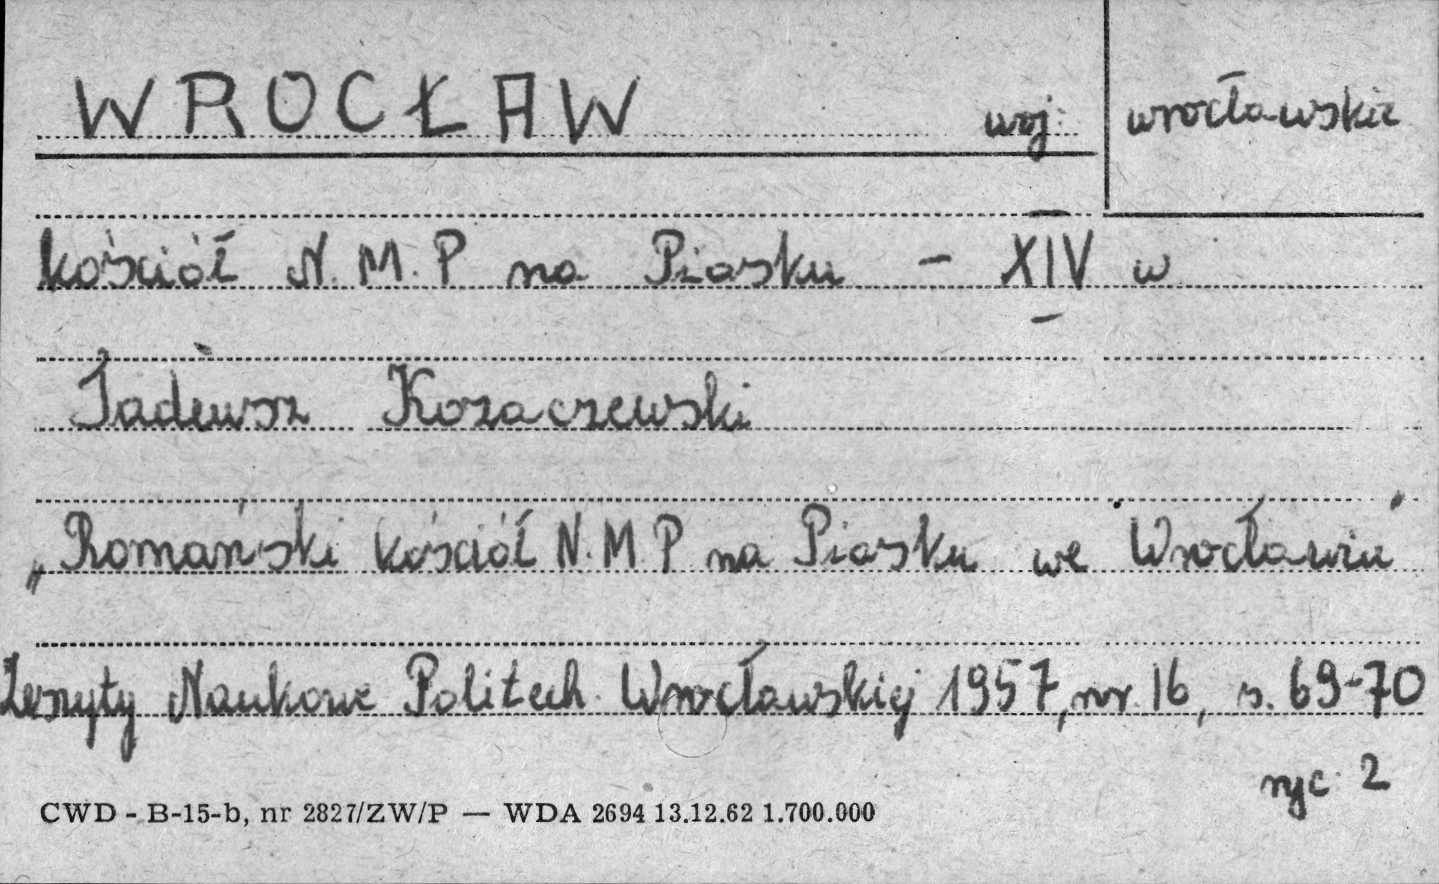 WROCŁAW woj. wrocławskie
kościół N.M.P na Piasku - XIV w
Tadeusz Kozaczewski
„Romański kościół N.M P na Piasku we Wrocławiu"
Zeszyty Naukowe Politech. Wrocławskiej 1957, nr. 16, s. 69-70
ryc. 2
CWD - B-15-b, nr 2827/ZW/P — WDA 2694 13.12.62 1.700.000